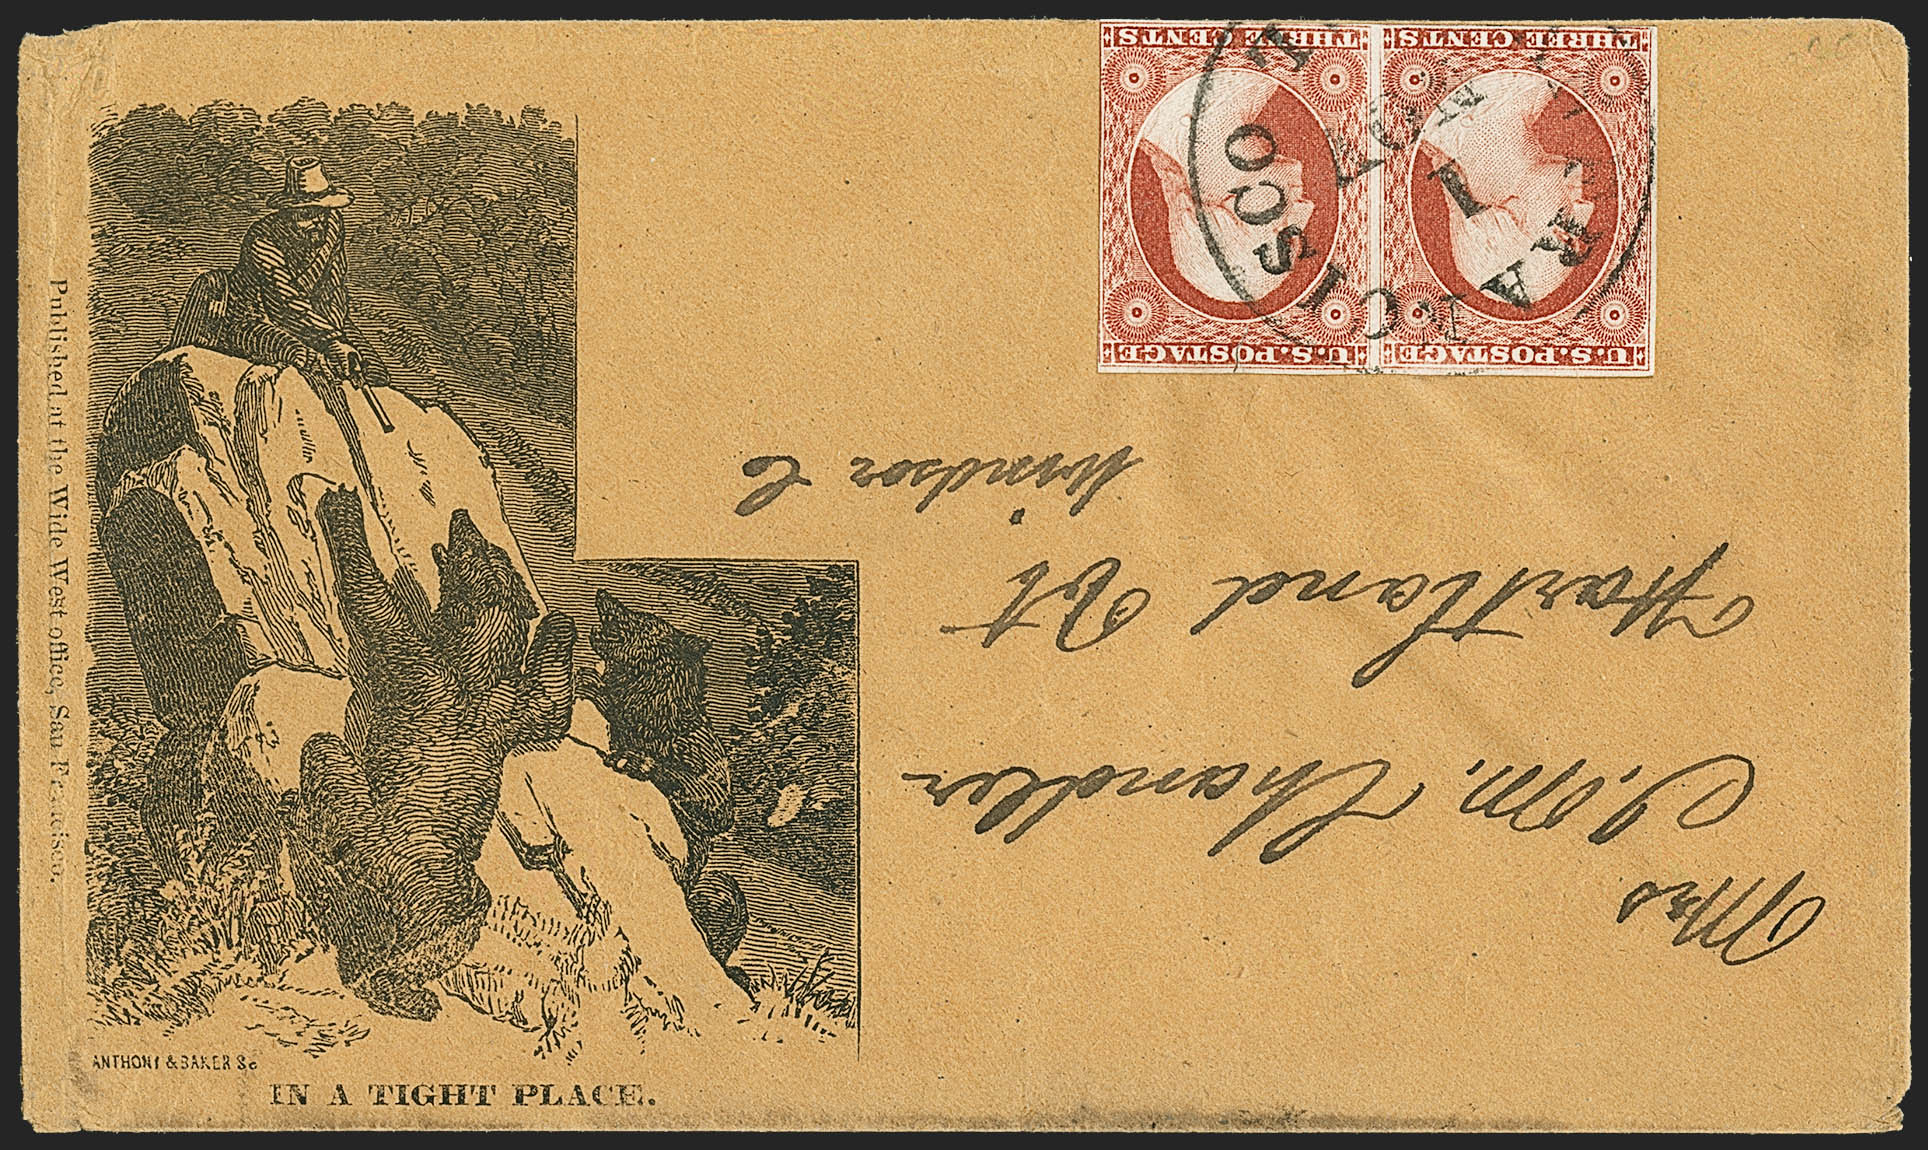 Published at the Wide West office, San Francisco.
ANTHONY & BAKER Sc
IN A TIGHT PLACE.
THREE CENTS THREE CENTS
U.S. POSTAGE U.S. POSTAGE
Mrs
J. M. Chandler
Hartland Vt
Windsor Co